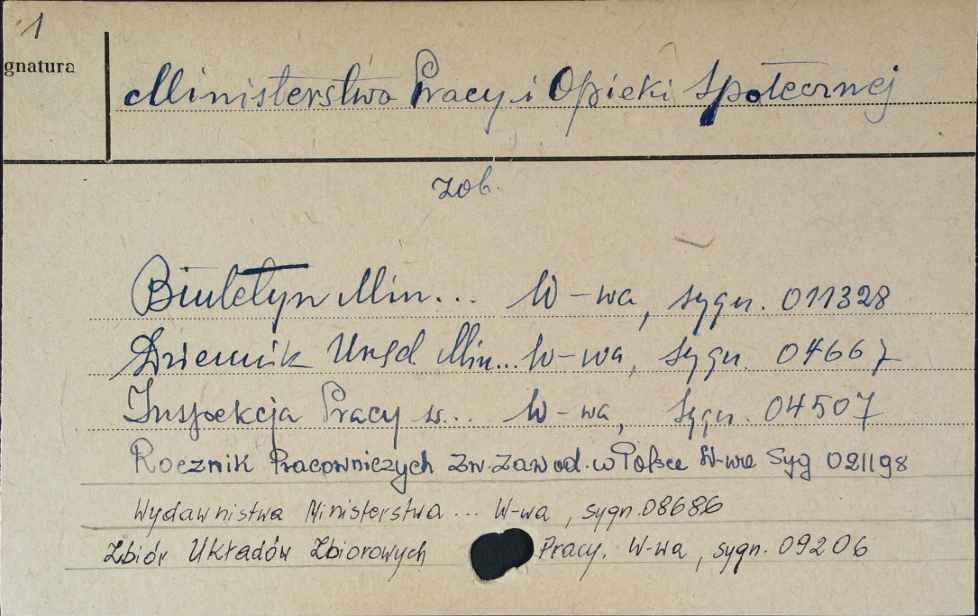 1
gnatura
Ministerstwo Pracy i Opieki Społecznej
zob.
Biuletyn Min... W-wa, sygn. 011328
Dziennik Urzęd Min... W-wa, sygn. 04667
Inspekcja Pracy w... W-wa, sygn. 04507
Rocznik Pracowniczych Zw. Zawod. w Polsce W-wa Syg 021198
Wydawnistwa Ministerstwa ... W-wa, sygn. 08686
Zbiór Układów Zbiorowych Pracy. W-wa, sygn. 09206